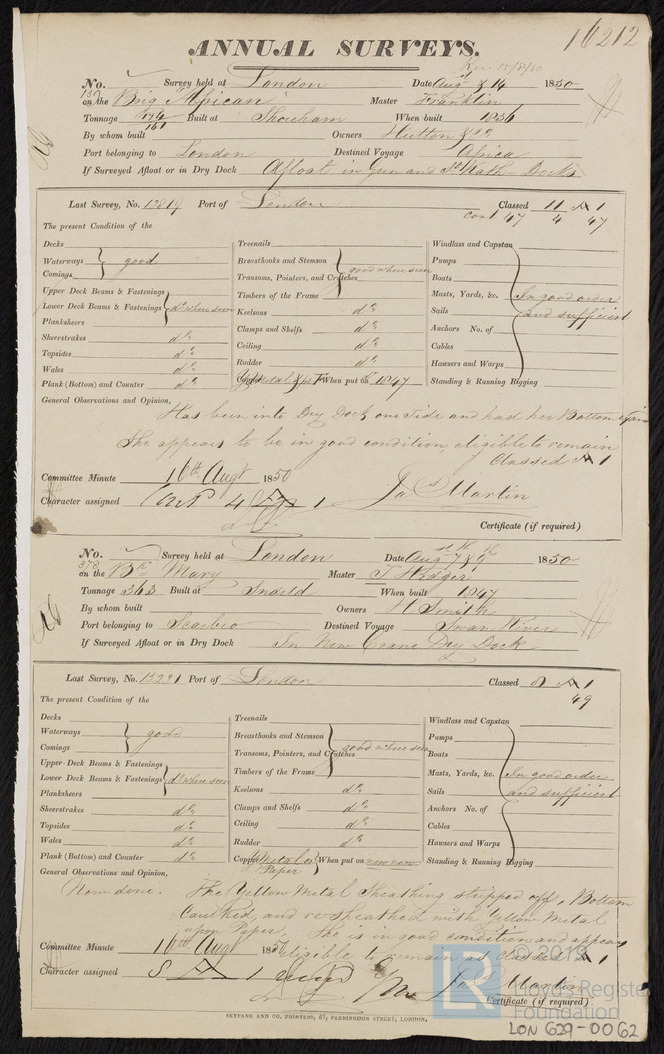 16212
ANNUAL SURVEYS.
Rec 15/8/50
No. Survey held at London Date Aug 8 14 1850
on the Brig African Master Franklin
Tonnage 174 Built at Shoreham When built 1836
161
By whom built Owners Hutton & Co
Port belonging to London Destined Voyage Africa
If Surveyed Afloat or in Dry Dock Afloat in Gun and St Kath. Docks
Last Survey, No. 13819 Port of London Classed 11 A 1
cont 47 4 47
The present Condition of the
Decks
Waterways good
Comings
Upper Deck Beams & Fastenings
Lower Deck Beams & Fastenings do where seen
Planksheers
Sheerstrakes do
Topsides do
Wales do
Plank (Bottom) and Counter do
Treenails
Breasthooks and Stemson good where seen
Transoms, Pointers, and Crutches
Timbers of the Frame
Keelsons do
Clamps and Shelfs do
Ceiling do
Rudder do
Y Metal & Felt When put on 1847
Windlass and Capstan
Pumps
Boats
Masts, Yards, &c. In good order
Sails and sufficient
Anchors No. of
Cables
Hawsers and Warps
Standing & Running Rigging
General Observations and Opinion,
Has been into Dry Dock one tide and had her Bottom
She appears to be in good condition, eligible to remain
Classed A 1
Committee Minute 16th Augt 1850
Character assigned Cont 4 1
Jas Martin
Certificate (if required)
No. Survey held at London Date Aug 7 8 9 1850
373
on the Bk Mary Master J Hedger
Tonnage 363 Built at Sndrld When built 1847
By whom built Owners H Smith
Port belonging to Scarbro Destined Voyage Swan River
If Surveyed Afloat or in Dry Dock In New Crane Dry Dock
Last Survey, No. Port of London Classed 8 A 1
49
The present Condition of the
Decks
Waterways good
Comings
Upper Deck Beams & Fastenings
Lower Deck Beams & Fastenings do where seen
Planksheers
Sheerstrakes do
Topsides do
Wales do
Plank (Bottom) and Counter do
Treenails
Breasthooks and Stemson good where seen
Transoms, Pointers, and Crutches
Timbers of the Frame
Keelsons do
Clamps and Shelfs do
Ceiling do
Rudder do
Copper Metal & When put on now new
Paper
Windlass and Capstan
Pumps
Boats
Masts, Yards, &c. In good order
Sails and sufficient
Anchors No. of
Cables
Hawsers and Warps
Standing & Running Rigging
General Observations and Opinion,
Now done. The Yellow Metal Sheathing stripped off, Bottom
Caulked, and resheathed with Yellow Metal
upon Paper, She is in good condition and appears
eligible to remain as classed A 1
Committee Minute 16th Augt 1850
Character assigned 8 A 1
Jas Martin
Certificate (if required)
SEYFANG AND CO. PRINTERS, 57, FARRINGDON STREET, LONDON.
© 2019
LR
Lloyd's Register
Foundation
LON 629-0062